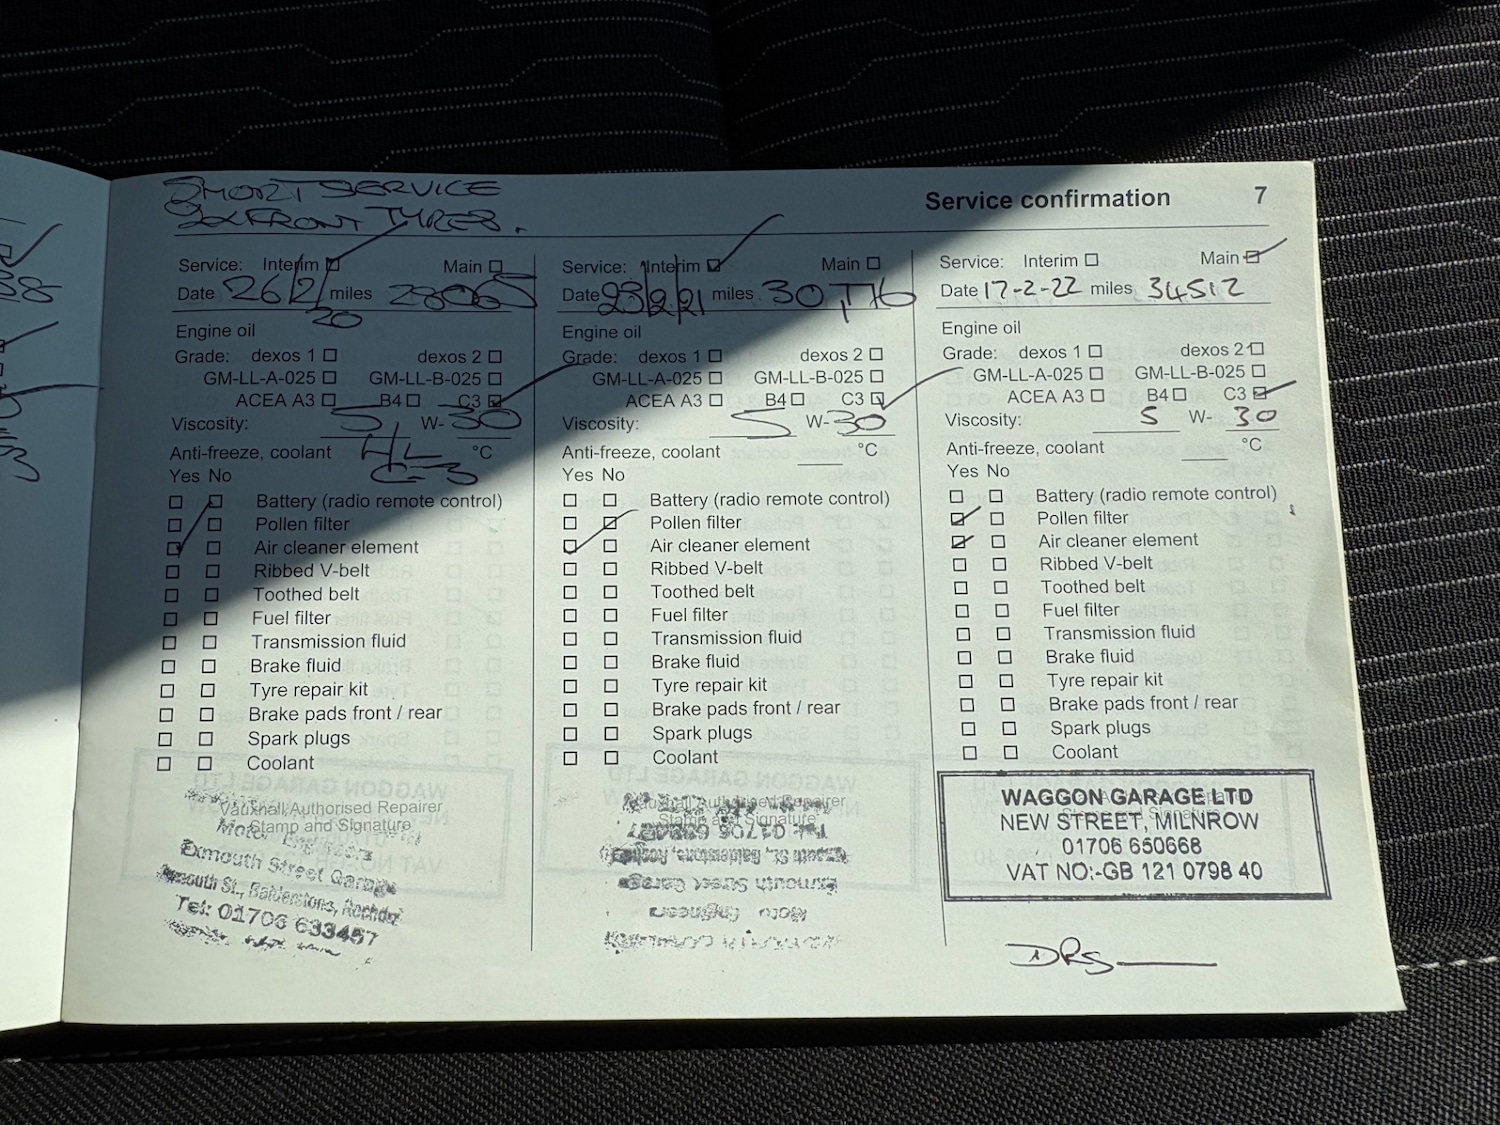 SHORT SERVICE
2x FRONT TYRES.
Service confirmation 7
Service: Interim Main
Date 26/2/20 miles 28065
Engine oil
Grade: dexos 1 dexos 2
GM-LL-A-025 GM-LL-B-025
ACEA A3 B4 C3
Viscosity: 5 W- 30
Anti-freeze, coolant °C
Yes No
Battery (radio remote control)
Pollen filter
Air cleaner element
Ribbed V-belt
Toothed belt
Fuel filter
Transmission fluid
Brake fluid
Tyre repair kit
Brake pads front / rear
Spark plugs
Coolant
Vauxhall Authorised Repairer
Stamp and Signature
Motor Engineers
Exmouth Street Garage
Exmouth St., Balderstone, Rochdale
Tel: 01706 633457
Service: Interim Main
Date 23/2/21 miles
Engine oil
Grade: dexos 1 dexos 2
GM-LL-A-025 GM-LL-B-025
ACEA A3 B4 C3
Viscosity: 5 W- 30
Anti-freeze, coolant °C
Yes No
Battery (radio remote control)
Pollen filter
Air cleaner element
Ribbed V-belt
Toothed belt
Fuel filter
Transmission fluid
Brake fluid
Tyre repair kit
Brake pads front / rear
Spark plugs
Coolant
Vauxhall Authorised Repairer
Stamp and Signature
Exmouth Street Garage
Motor Engineers
Service: Interim Main
Date 17-2-22 miles 34512
Engine oil
Grade: dexos 1 dexos 2
GM-LL-A-025 GM-LL-B-025
ACEA A3 B4 C3
Viscosity: 5 W- 30
Anti-freeze, coolant °C
Yes No
Battery (radio remote control)
Pollen filter
Air cleaner element
Ribbed V-belt
Toothed belt
Fuel filter
Transmission fluid
Brake fluid
Tyre repair kit
Brake pads front / rear
Spark plugs
Coolant
WAGGON GARAGE LTD
NEW STREET, MILNROW
01706 650668
VAT NO:-GB 121 0798 40